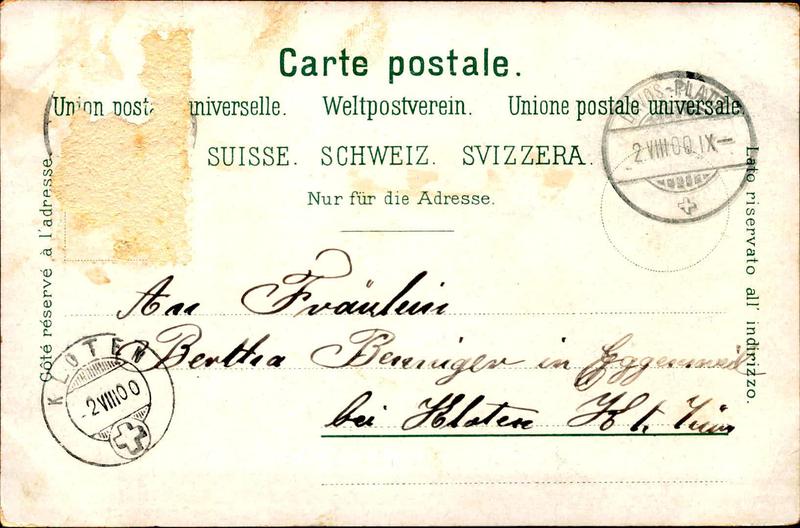 Carte postale.
Union posta universelle. Weltpostverein. Unione postale universale.
SUISSE. SCHWEIZ. SVIZZERA.
Nur für die Adresse.
Côté réservé à l'adresse.
Lato riservato all' indirizzo.
2 VIII 00.IX
An Fräulein
Bertha Benniger in Eggenweil
bei Kloten Kt.
KLOTEN
-2 VIII 00